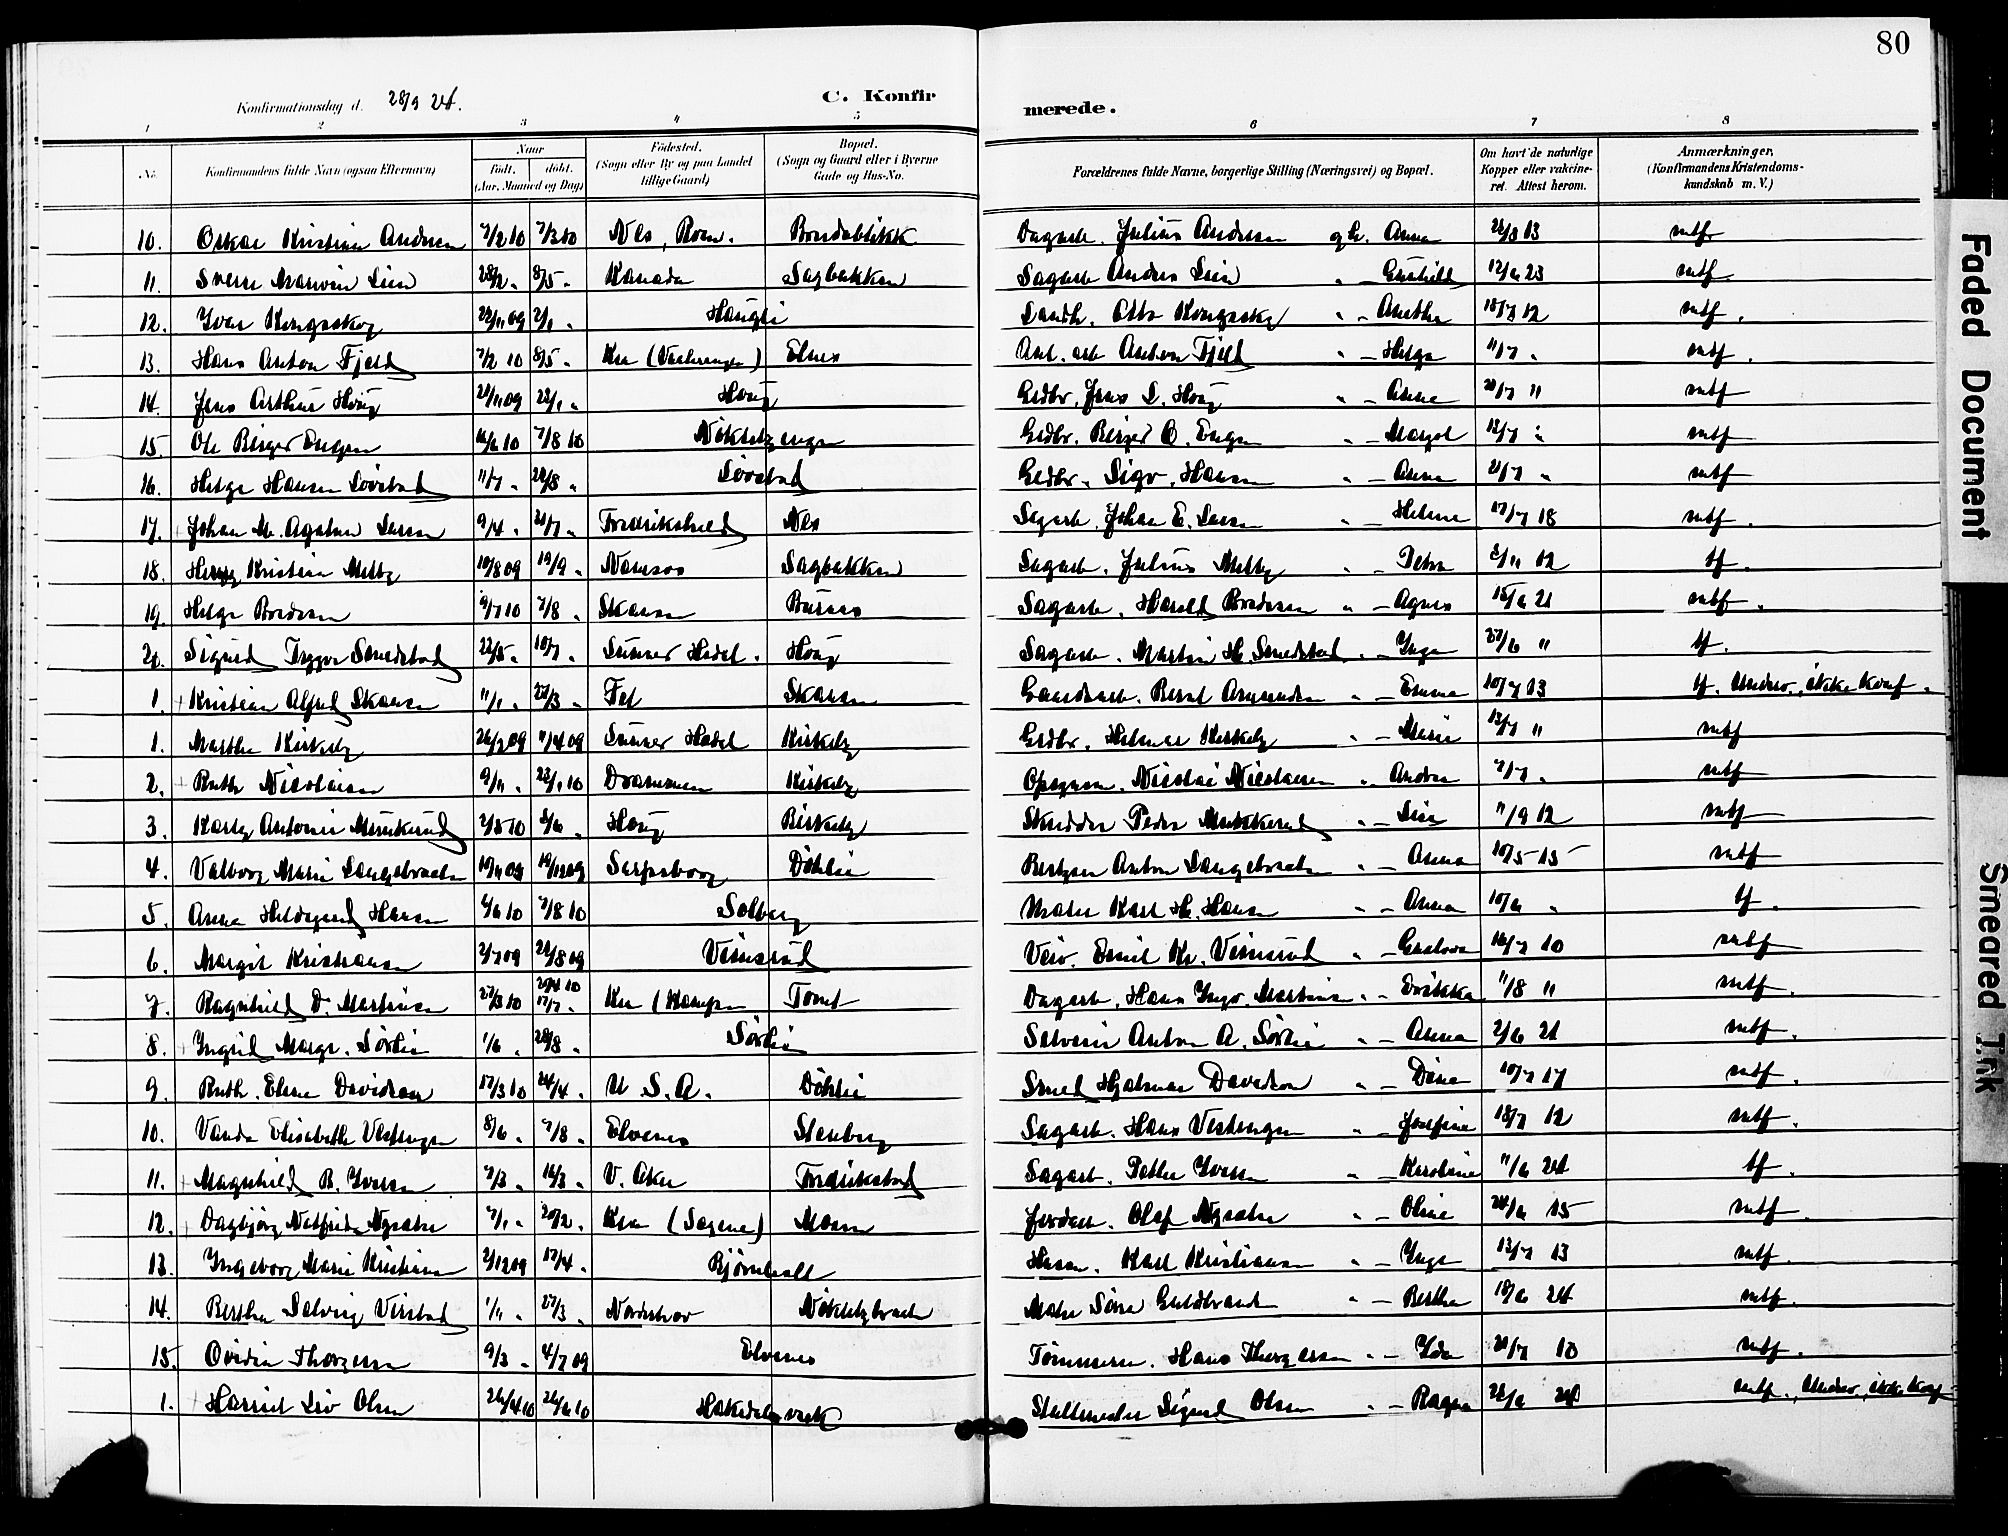 80
Konfirmationsdag d. 28/9 24.
C. Konfir
merede.
1 2 3 4 5 6 7 8
No.
Konfirmandens fulde Navn (ogsaa Efternavn)
Naar
født. døbt.
(Aar, Maaned og Dag)
Fødested.
(Sogn eller By og paa Landet
tillige Gaard)
Bopæl.
(Sogn og Gaard eller i Byerne
Gade og Hus-No.
Forældrenes fulde Navne, borgerlige Stilling (Næringsvei) og Bopæl.
Om havt de naturlige
Kopper eller vaccine-
ret. Attest herom.
Anmærkninger,
(Konfirmandens Kristendoms-
kundskab m. V.)
10. Oskar Kristian Andersen 7/2 10 7/3 10 Nes, Rom. Dagarb. Julius Andersen og h. Anna 22/8 13 mtf
11. Sverre Marvin Lien 28/2 " 8/5 " Kanada Sagbakken Sagarb. Anders Lien " - 12/6 23 mtf.
12. Yvar Kongsskog 22/11 09 2/1 " Haugli Landh. Otto Kongsskog " - Anetha 18/7 12 mtf.
13. Hans Anton Fjeld 7/2 10 8/5 " Kra (Vaalerengen) Elnes Anl. arb Anton Fjeld " - Helga 11/7 " mtf.
14. Jens Arthur Haug 21/11 09 22/1 " Haug Grdbr. Jens L. Haug " - Anna 20/7 " mtf
15. Ole Birger Engen 16/6 10 7/8 10 Grdbr. Birger O. Engen " - Margot 12/7 " mtf
16. Helge Hansen Lövstad 11/7 " 28/8 " Lövstad Grdbr. Sigv. Hansen " - Anna 21/7 " mtf
17. Johan M. Agaton Larsen 9/4 " 21/7 " Fredrikshald Nes Sagarb. Johan E. Larsen " - Helene 17/7 18 mtf.
18. Henry Kristian Melby 10/8 09 19/9 " Namsos Sagbakken Sagarb. Julius Melby " - Petra 2/11 12 tf.
19. Helge Bredesen 9/7 10 7/8 " Skansen Buraas Sagarb. Harald Bredesen " - Agnes 15/6 21 mtf.
20. Sigurd Trygve Smedstad 22/5 " 10/7 " Lunner Hadel. Haug Sagarb. Martin H. Smedstad " - Inga 27/6 " tf.
1. Kristian Alfred Skansen 11/1 " 27/3 " Fet Skansen Gaardsarb. Bernt Amundsen " - Emma 10/7 13 tf. Underv., ikke konf.
1. Martha Kirkeby 26/2 09 11/4 09 Lunner Hadel Kirkeby Grdbr. Helmer Kirkeby " - Marie 13/7 " mtf
2. Ruth Nicolaisen 9/11 " 23/1 10 Drammen Kirkeby Opsynsm. Nicolai Nicolaisen " - Andrea 7/7 " mtf
3. Karly Antonie Munkerud 2/5 10 5/6 " Haug Birkeby Skrædder Peder Munkerud " - Lina 11/9 12 mtf
4. Valborg Marie Langebraaten 10/11 09 19/12 09 Sarpsborg Döhlie Anton Langebraaten " - Anna 10/5 15 mtf
5. Anna Hildegard Hansen 4/6 10 7/8 10 Solberg Maler Karl H. Hansen " - Anna 10/6 " tf.
6. Margit Kristiansen 2/7 09 29/8 09 Veiv. Emil Kr. " - Gustava 16/7 10 mtf
7. Ragnhild D. Martinsen 27/3 10 17/7 " Kra (Kampen Tomt Dagarb. Hans Ingv. Martinsen " - 11/8 " mtf.
8. Ingrid Margr. Sörlie 1/6 " 28/8 " Sörlie Anton A. Sörlie " - Anna 2/6 21 mtf.
9. Ruth. Elene Davidsen 17/3 10 24/4 " U. S. A. Döhlie Smed Hjalmar Davidson " - Dina 10/7 17 mtf.
10. Vanda Elisabeth Vestengen 8/6 " 7/8 " Elvenes Stenberg Sagarb. Hans Vestengen " - Josefine 18/7 12 mtf.
11. Magnhild B. Iversen 7/3 " 16/3 " V. Aker Fredrikstad Sagarb. Petter Iversen " - Karoline 11/6 24 tf.
12. Dagbjørg Nygaten 7/1 " 20/2 " Kra (Sagene) Moen Jordarb. Olaf Nygaten " - Oline 24/6 15 mtf.
13. Ingeborg Marie Kristiansen 2/12 09 17/4 " Bjørnholt Karl Kristiansen " - Inga 13/7 13 mtf.
14. Bertha Solveig Verstad 1/11 " 27/3 " Nordstrøm Maler Guldbrand " - Bertha 18/6 24 mtf.
15. Ovidia Thorgersen 9/3 " 4/7 09 Elvenes Tømmerm. Hans Thorgersen " - Ida 20/7 10 mtf.
1. Harriet Liv Olsen 26/4 10 26/6 10 Hakedalsverk Sigurd Olsen " - Ragna 24/6 24 mtf. Underv., ikke konf.
Faded Document
Smeared Ink